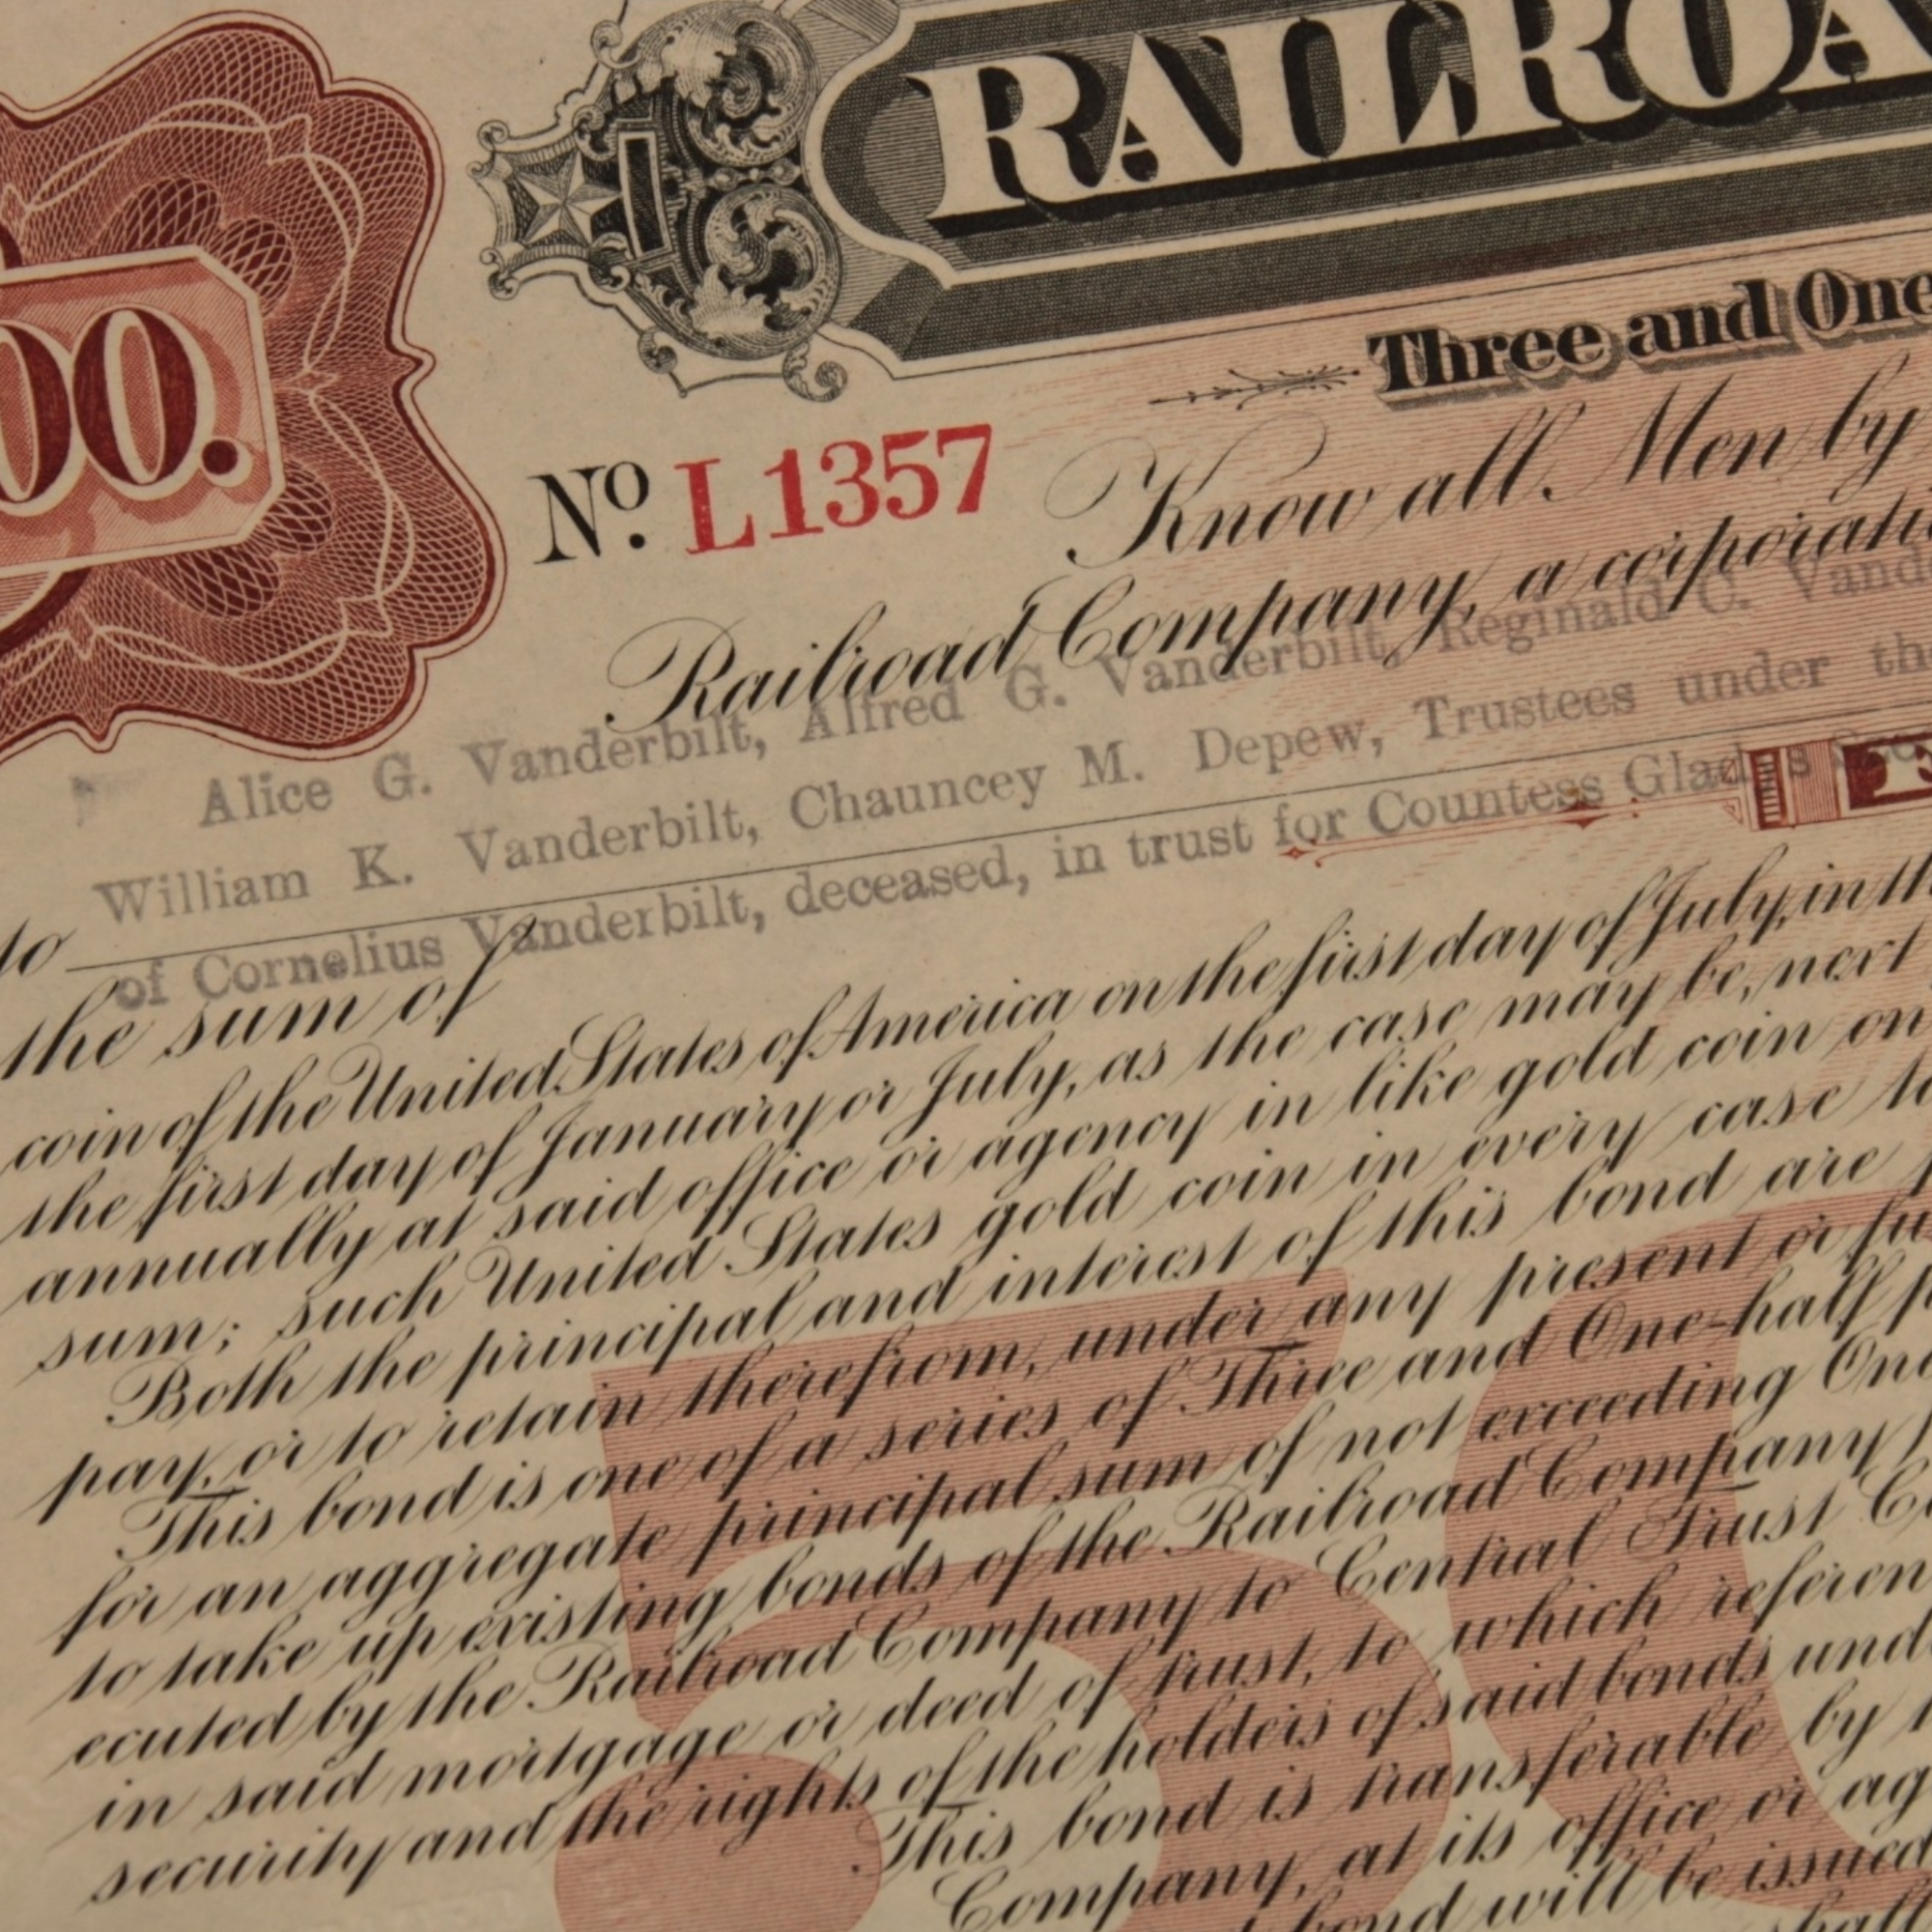 RAILROA
Three and One
00.
No. L1357
Know all Men by
Railroad Company, a corporati
Alice G. Vanderbilt, Alfred G. Vanderbilt, Reginald C. Vand
William K. Vanderbilt, Chauncey M. Depew, Trustees under th
to
of Cornelius Vanderbilt, deceased, in trust for Countess Gladys
the sum of
coin of the United States of America on the first day of July, in th
the first day of January or July, as the case may be, next
annually at said office or agency in like gold coin on
sum; such United States gold coin in every case to
Both the principal and interest of this bond are
pay, or to retain therefrom, under any present or fu
This bond is one of a series of Three and One-half p
for an aggregate principal sum of not exceeding One
to take up existing bonds of the Railroad Company
ecuted by the Railroad Company to Central Trust C
in said mortgage or deed of trust, to which referen
security and the rights of the holders of said bonds und
This bond is transferable by
Company, at its office or ag
bond will be issued
half
50